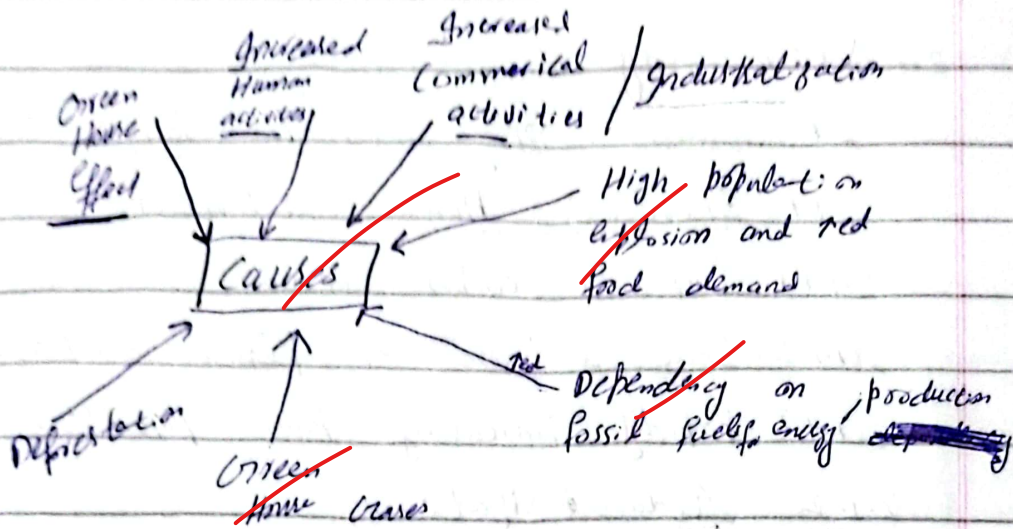 Green
House
Effect
Increased
Human
activities
Increased
Commerical
activities / Industralization
High population
explosion and ↑ed
food demand
Causes
↑ed
Dependency on
fossil fuels for energy production
Deforestation
Green
House Gases